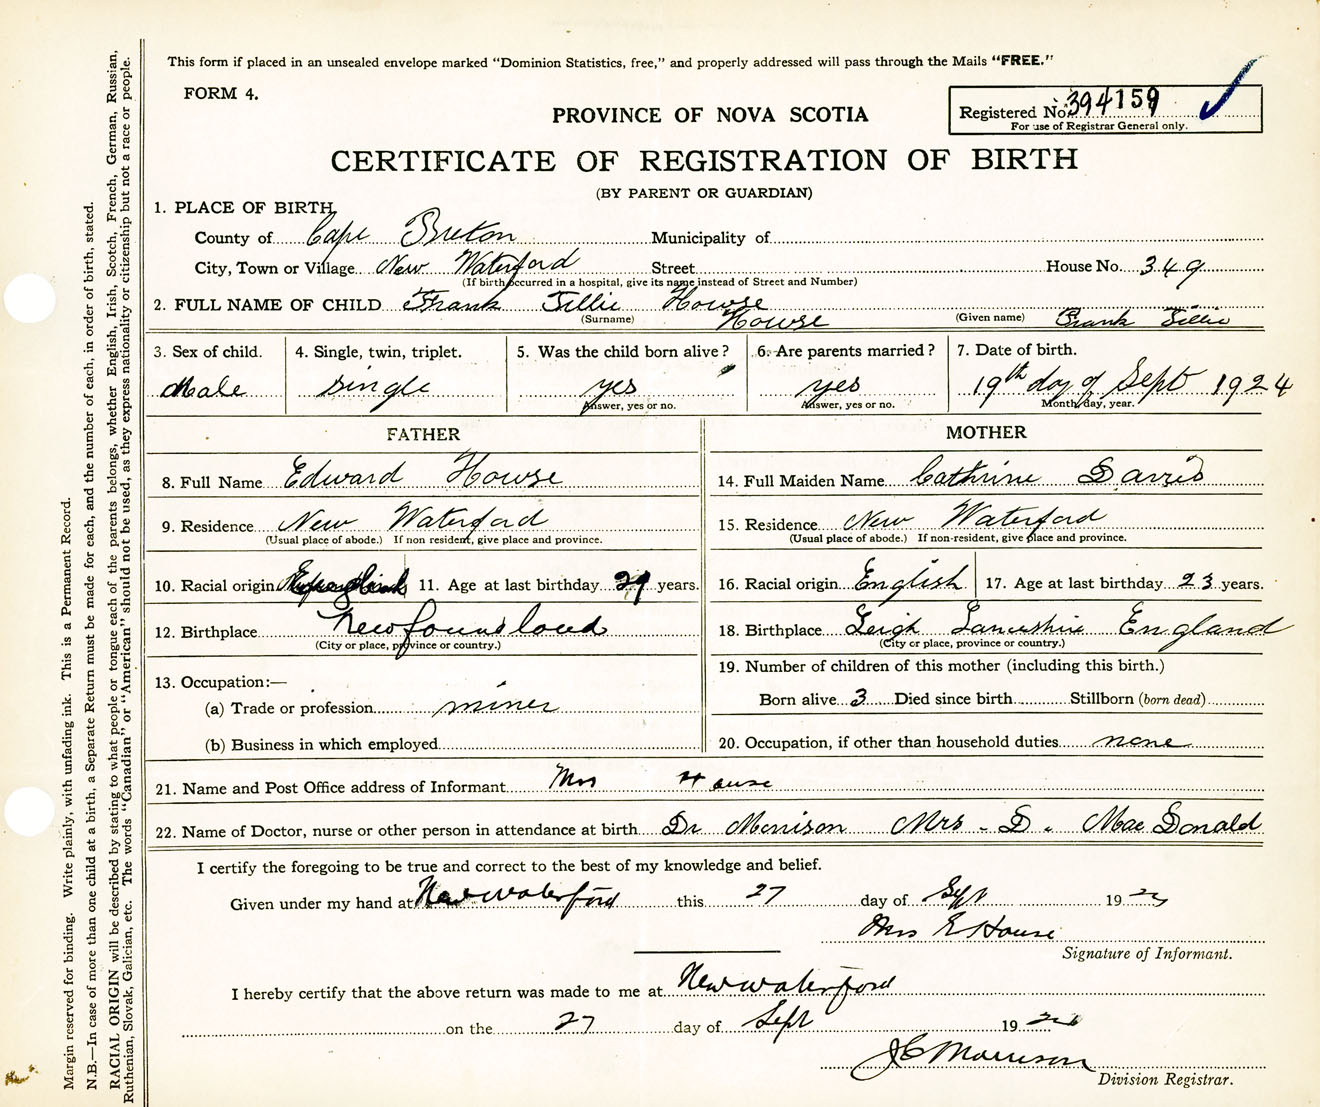 This form if placed in an unsealed envelope marked "Dominion Statistics, free," and properly addressed will pass through the Mails "FREE."
FORM 4.
PROVINCE OF NOVA SCOTIA
Registered No. 394159
For use of Registrar General only.
CERTIFICATE OF REGISTRATION OF BIRTH
(BY PARENT OR GUARDIAN)
1. PLACE OF BIRTH
County of Cape Breton Municipality of
City, Town or Village New Waterford Street House No. 349
(If birth occurred in a hospital, give its name instead of Street and Number)
2. FULL NAME OF CHILD Frank Tillie Howse
(Surname) Howse (Given name) Frank Tillie
3. Sex of child. 4. Single, twin, triplet. 5. Was the child born alive? 6. Are parents married? 7. Date of birth.
Male single yes yes 19th day of Sept 1924
Answer, yes or no. Answer, yes or no. Month, day, year.
FATHER MOTHER
8. Full Name Edward Howse 14. Full Maiden Name Cathrine Davis
9. Residence New Waterford 15. Residence New Waterford
(Usual place of abode.) If non resident, give place and province. (Usual place of abode.) If non-resident, give place and province.
10. Racial origin 11. Age at last birthday 29 years. 16. Racial origin English 17. Age at last birthday 23 years.
12. Birthplace Newfoundloud 18. Birthplace Leigh Lancshire England
(City or place, province or country.) (City or place, province or country.)
19. Number of children of this mother (including this birth.)
13. Occupation:—
(a) Trade or profession miner Born alive 3 Died since birth Stillborn (born dead)
(b) Business in which employed 20. Occupation, if other than household duties none
21. Name and Post Office address of Informant Mrs House
22. Name of Doctor, nurse or other person in attendance at birth Dr Morrison Mrs. D. MacDonald
I certify the foregoing to be true and correct to the best of my knowledge and belief.
Given under my hand at New waterford this 27 day of Sept 19
Mrs E House
Signature of Informant.
I hereby certify that the above return was made to me at New waterford
on the 27 day of Sept 19
J C Morrison
Division Registrar.
Margin reserved for binding. Write plainly, with unfading ink. This is a Permanent Record.
N.B.—In case of more than one child at a birth, a Separate Return must be made for each, and the number of each, in order of birth, stated.
RACIAL ORIGIN will be described by stating to what people or tongue each of the parents belongs, whether English, Irish, Scotch, French, German, Russian,
Ruthenian, Slovak, Galician, etc. The words "Canadian" or "American" should not be used, as they express nationality or citizenship but not a race or people.